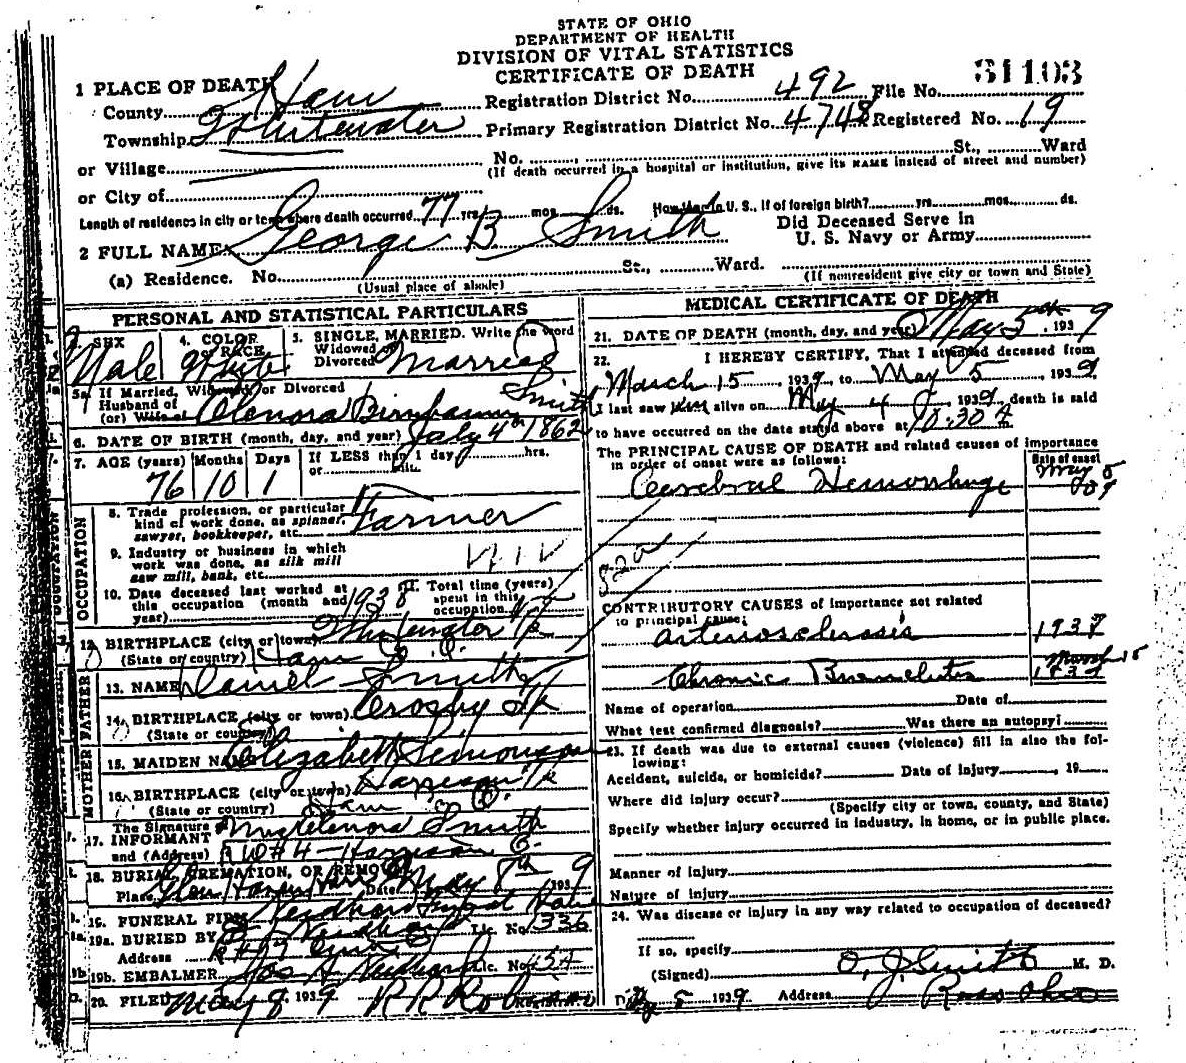 STATE OF OHIO
DEPARTMENT OF HEALTH
DIVISION OF VITAL STATISTICS
CERTIFICATE OF DEATH
31103
1 PLACE OF DEATH
County Ham Registration District No. 492 File No.
Township Whitewater Primary Registration District No. 4748 Registered No. 19
or Village No. , St., Ward
(If death occurred in a hospital or institution, give its NAME instead of street and number)
or City of
Length of residence in city or town where death occurred 77 yrs. mos. ds. How long in U. S., if of foreign birth? yrs. mos. ds.
2 FULL NAME George B Smith
Did Deceased Serve in
U. S. Navy or Army
(a) Residence. No. St., Ward.
(Usual place of abode) (If nonresident give city or town and State)
PERSONAL AND STATISTICAL PARTICULARS
3. SEX Male
4. COLOR OR RACE White
5. SINGLE, MARRIED, Widowed or Divorced Write the word Married
5a. If Married, Widowed, or Divorced
Husband of
(or) Wife of Elenora Smith
6. DATE OF BIRTH (month, day, and year) July 4th 1862
7. AGE (years) Months Days If LESS than 1 day hrs.
or min.
76 10 1
OCCUPATION
8. Trade profession, or particular
kind of work done, as spinner,
sawyer, bookkeeper, etc. Farmer
9. Industry or business in which
work was done, as silk mill
saw mill, bank, etc.
10. Date deceased last worked at
this occupation (month and
year) 1938
11. Total time (years)
spent in this
occupation
12. BIRTHPLACE (city or town) Whitewater
(State or country) Ham O.
FATHER
13. NAME Daniel Smith
14. BIRTHPLACE (city or town) Crosby
(State or country)
MOTHER
15. MAIDEN NAME Elizabeth
16. BIRTHPLACE (city or town) Harrison
(State or country) Ham O.
The Signature of
17. INFORMANT Mrs Elenora Smith
and (Address) #4 - Harrison O.
18. BURIAL, CREMATION, OR REMOVAL
Place Glen Haven Date May 8th 1939
19. FUNERAL FIRM Neidhard Funeral Lic. No. 1336
19a. BURIED BY Neidhard
Address
19b. EMBALMER Jos A Neidhard Lic. No.
20. FILED May 8 1939 R R
MEDICAL CERTIFICATE OF DEATH
21. DATE OF DEATH (month, day, and year) May 5th, 1939
22. I HEREBY CERTIFY, That I attended deceased from
March 15, 1939, to May 5, 1939.
I last saw him alive on May 4, 1939, death is said
to have occurred on the date stated above at 10:30 A
The PRINCIPAL CAUSE OF DEATH and related causes of importance
in order of onset were as follows:
Date of onset
Cerebral Hemorrhage May 5 39
82a
CONTRIBUTORY CAUSES of importance not related
to principal cause:
arteriosclerosis 1937
Chronic March 15
Name of operation Date of
What test confirmed diagnosis? Was there an autopsy?
23. If death was due to external causes (violence) fill in also the fol-
lowing:
Accident, suicide, or homicide? Date of injury , 19
Where did injury occur?
(Specify city or town, county, and State)
Specify whether injury occurred in industry, in home, or in public place.
Manner of injury
Nature of injury
24. Was disease or injury in any way related to occupation of deceased?
If so, specify
(Signed) O. J. Smith M. D.
5 1939 Address Ross Ohio